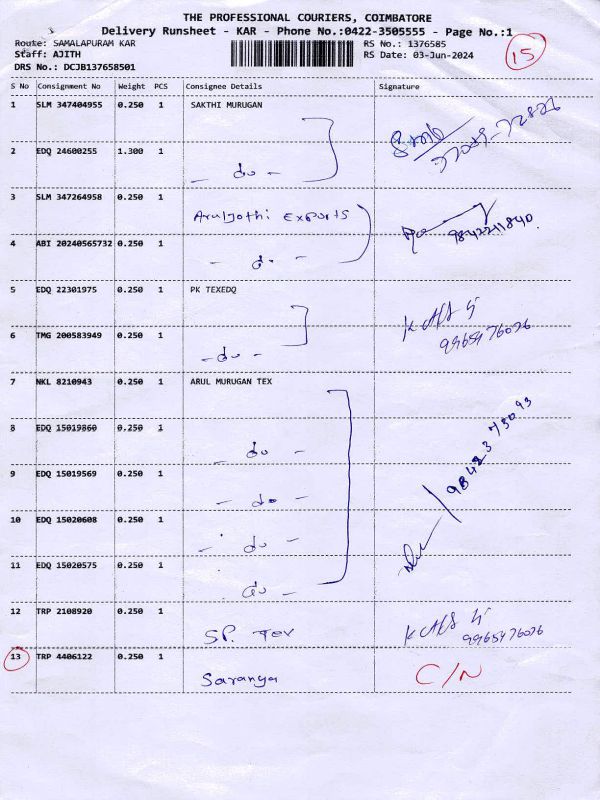 THE PROFESSIONAL COURIERS, COIMBATORE
Delivery Runsheet - KAR - Phone No.:0422-3505555 - Page No.:1
Route: SAMALAPURAM KAR RS No.: 1376585
Staff: AJITH RS Date: 03-Jun-2024
DRS No.: DCJB137658501
15
S No Consignment No Weight PCS Consignee Details Signature
1 SLM 347404955 0.250 1 SAKTHI MURUGAN
2 EDQ 24600255 1.300 1 - do -
3 SLM 347264958 0.250 1 Aruljothi Exports
9842211840.
4 ABI 20240565732 0.250 1 - do -
5 EDQ 22301975 0.250 1 PK TEXEDQ
6 TMG 200583949 0.250 1 - do -
9965476026
7 NKL 8210943 0.250 1 ARUL MURUGAN TEX
8 EDQ 15019860 0.250 1 - do -
9 EDQ 15019569 0.250 1 - do -
10 EDQ 15020608 0.250 1 - do -
11 EDQ 15020575 0.250 1 do -
12 TRP 2108920 0.250 1 SP. Tex
9965476026
13 TRP 4406122 0.250 1 Saranya C/N